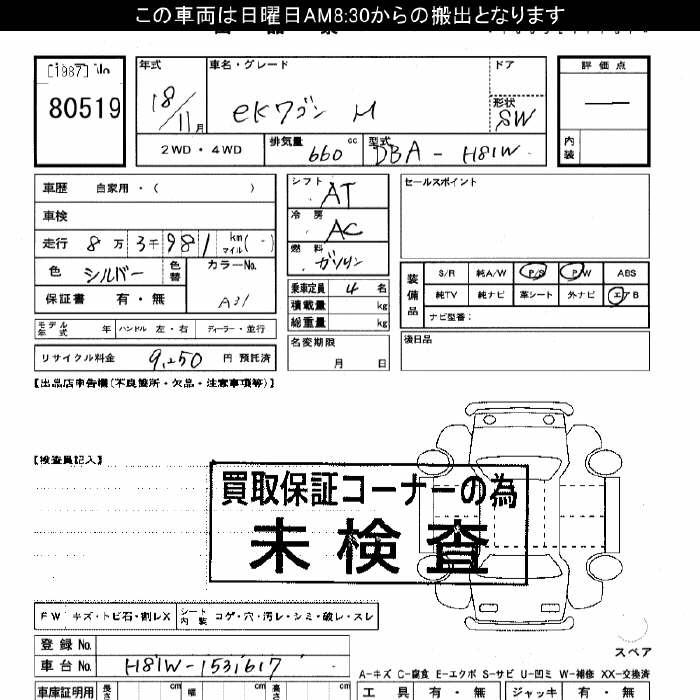 この車両は日曜日AM8:30からの搬出となります
[1987] No
80519
年式 車名・グレード ドア
18/11月 eKワゴン M
形状 SW
2WD・4WD 排気量 660 cc 型式 DBA-H81W
評価点
内装
車歴 自家用・( )
車検
走行 8万3千981 km マイル(-)
色 シルバー 色替 カラーNo. A31
保証書 有・無
シフト AT
冷房 AC
燃料 ガソリン
乗車定員 4 名
積載量 kg
総重量 kg
名変期限 月 日
セールスポイント
装備品
S/R 純A/W P/S P/W ABS
純TV 純ナビ 革シート 外ナビ エアB
ナビ型番:
後日品
モデル年式 年 ハンドル 左・右 ディーラー・並行
リサイクル料金 9,250 円 預託済
【出品店申告欄(不良箇所・欠品・注意事項等)】
【検査員記入】
買取保証コーナーの為
未検査
FW キズ・トビ石・割レX シート内装 コゲ・穴・汚レ・シミ・破レ・スレ
登録No.
車台No. H81W-1531617
スペア
A-キズ C-腐食 E-エクボ S-サビ U-凹ミ W-補修 XX-交換済
車庫証明用 長さ cm 幅 cm 高さ cm
工具 有・無 ジャッキ 有・無